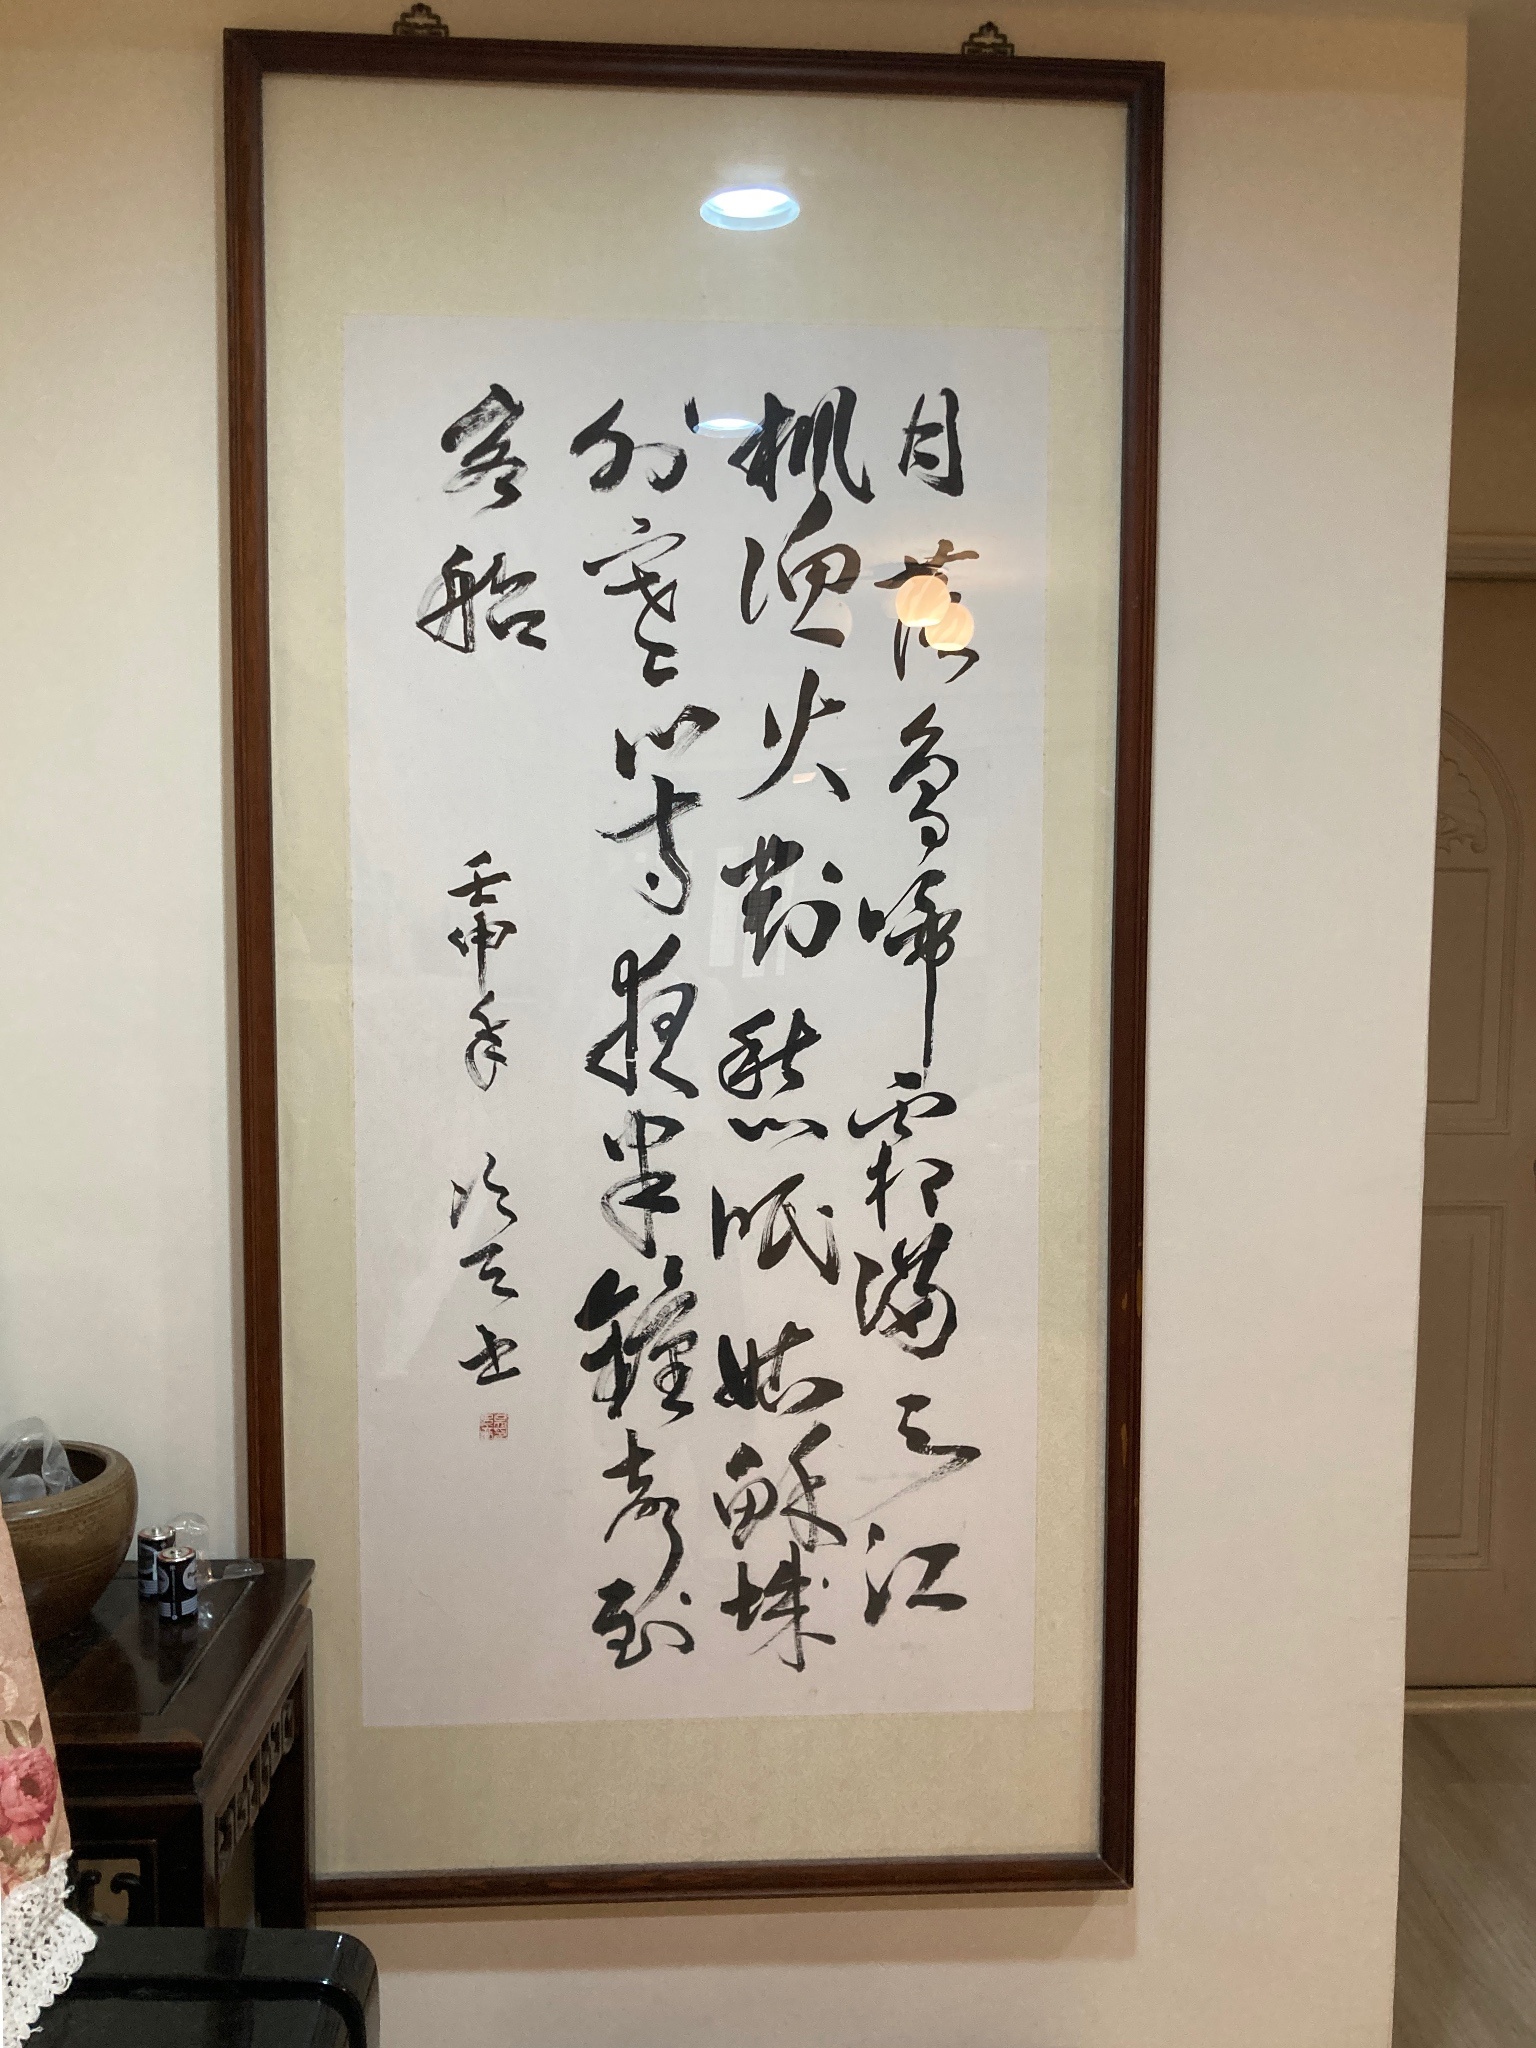 月落烏啼霜滿天江
楓漁火對愁眠姑蘇城
外寒山寺夜半鐘聲到
客船
壬申年